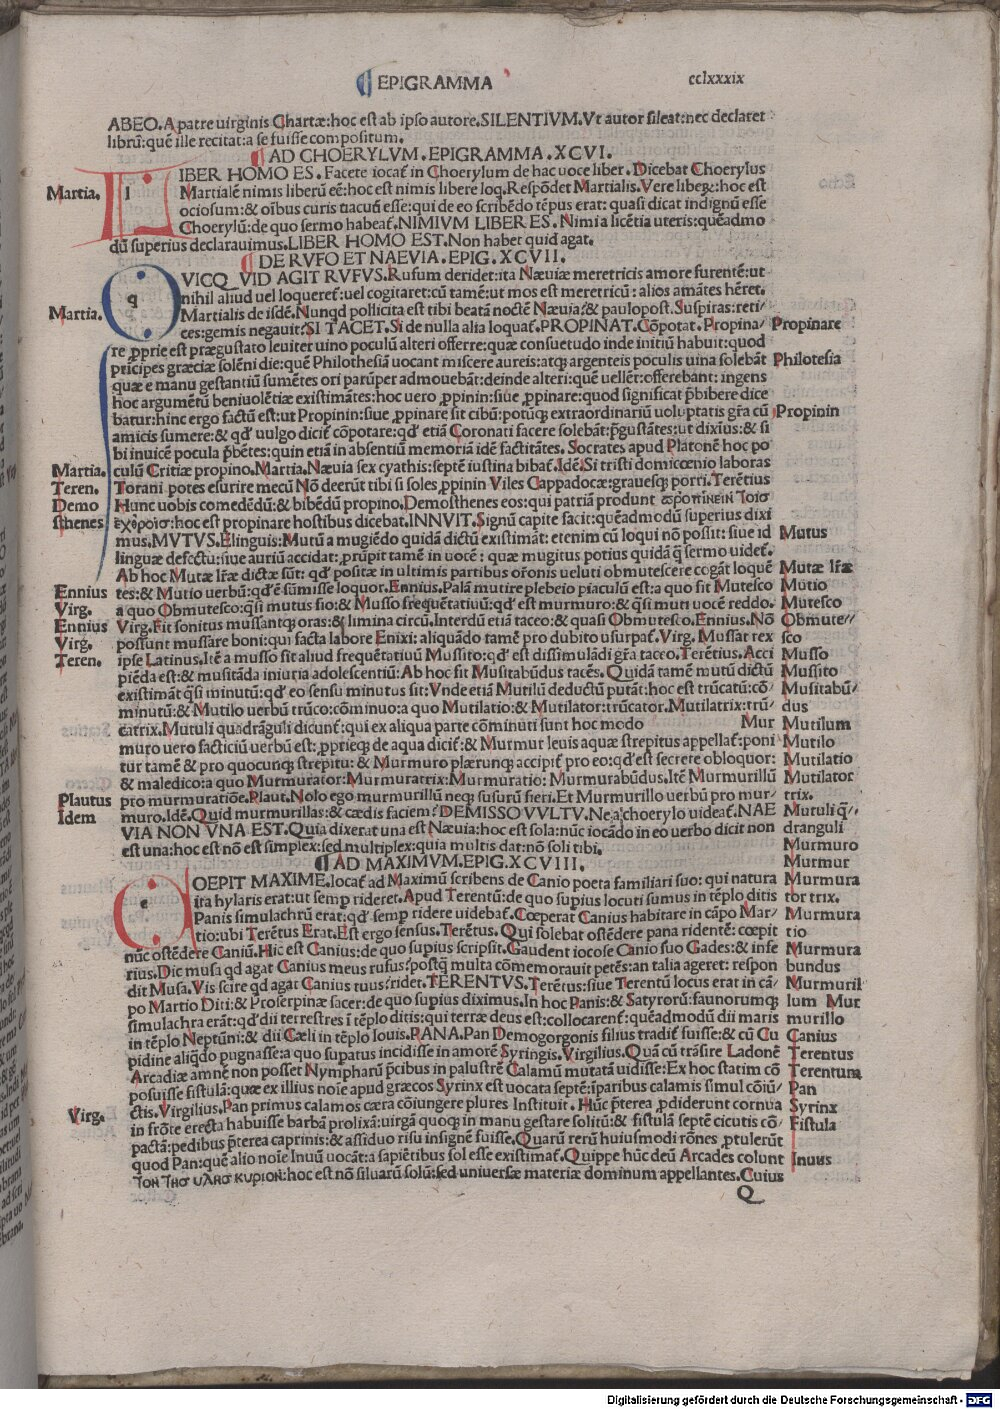 EPIGRAMMA
cclxxxix
ABEO.A patre uirginis Chartæ:hoc est ab ipso autore.SILENTIVM.Vt autor sileat:nec declaret
librū:quē ille recitat:a se fuisse compositum.
AD CHOERYLVM.EPIGRAMMA.XCVI.
Martia.
l
IBER HOMO ES. Facete iocat̄ in Choerylum de hac uoce liber. Dicebat Choerylus
Martialē nimis liberū eē:hoc est nimis libere loq.Respōdet Martialis.Vere liber eē:hoc est
ociosum:& oībus curis uacuū esse:qui de eo scribēdo tēpus erat: quasi dicat indignū esse
Choerylū:de quo sermo habeat̄.NIMIVM LIBER ES. Nimia licētia uteris:quēadmo
dū superius declarauimus.LIBER HOMO EST.Non haber quid agat.
DE RVFO ET NAEVIA.EPIG.XCVII.
q
VICQ VID AGIT RVFVS.Rufum deridet:ita Næuiæ meretricis amore furentē:ut
nihil aliud uel loqueret̄:uel cogitaret:cū tamē:ut mos est meretricū: alios amātes hēret.
Martia.
Martialis de isdē.Nunqd pollicita est tibi beatā noctē Næuia?& paulopost.Suspiras:reti/
ces:gemis negauit?SI TACET.Si de nulla alia loquat̄.PROPINAT.Cōpotat.Propina/
Propinare
re p̱prie est prægustato leuiter uino poculū alteri offerre:quæ consuetudo inde initiū habuit:quod
pricipes græciæ solēni die:quē Philothesiā uocant miscere aureis:atq̨ argenteis poculis uina solebāt
Philotesia
quæ e manu gestantiū sumētes ori parūper admouebāt:deinde alteri:quē uellēt:offerebant: ingens
hoc argumētū beniuolētiæ existimātes:hoc uero p̱pinin:siue p̱pinare:quod significat p̄bibere dice
batur:hinc ergo factū est:ut Propinin:siue p̱pinare sit cibū:potūq̨ extraordinariū uoluptatis gr̄a cū
Propinin
amicis sumere:& qd' uulgo dicit̄ cōpotare:qd' etiā Coronati facere solebāt:p̄gustātes:ut dixīus:& si
bi inuicē pocula p̄bētes:quin etiā in absentiū memoriā idē factitātes. Socrates apud Platonē hoc po
Martia.
culū Critiæ propino.Martia.Næuia sex cyathis:septē iustina bibat̄.Idē.Si tristi domicœnio laboras
Teren.
Torani potes esurire mecū Nō deerūt tibi si soles p̱pinin Viles Cappadocæ:grauesq̨ porri.Terētius
Demo
Hunc uobis comedēdū:& bibēdū propino.Demosthenes eos:qui patriā produnt ωροπινειν Ιοισ
sthenes
ἐχθροισ:hoc est propinare hostibus dicebat.INNVIT.Signū capite facit:quēadmodū superius dixi
mus.MVTVS.Elinguis:Mutū a mugiēdo quidā dictū existimāt: etenim cū loqui nō possit: siue id
Mutus
linguæ defectu:siue auriū accidat: p̱rūpit tamē in uocē: quæ mugitus potius quidā q̄ sermo uidet̄.
Ab hoc Mutæ lr̄æ dictæ sūt: qd' positæ in ultimis partibus or̄onis ueluti obmutescere cogāt loquē
Mutæ lr̄æ
Ennius
tes:& Mutio uerbū:qd'ē sūmisse loquor.Ennius.Palā mutire plebeio piaculū est:a quo sit Mutesco
Mutio
Virg.
a quo Obmutesco:q̄si mutus fio:& Musso frequētatiuū:qd' est murmuro:& q̄si muti uocē reddo.
Mutesco
Ennius
Virg.Fit sonitus mussantq̨ oras:& limina circū.Interdū etiā taceo:& quasi Obmutesco.Ennius.Nō
Obmute//
Virg.
possunt mussare boni:qui facta labore Enixi: aliquādo tamē pro dubito usurpat̄.Virg.Mussat rex
sco
Teren.
ipse Latinus.Itē a musso sit aliud frequētatiuū Mussito:qd' est dissimulādi gr̄a taceo.Terētius.Acci
Musso
piēda est:& musitāda iniuria adolescentiū:Ab hoc sit Musitabūdus tacēs.Quidā tamē mutū dictū
Mussito
existimāt q̄si minutū:qd' eo sensu minutus sit:Vnde etiā Mutilū deductū putāt:hoc est trūcatū:cō/
Musitabū/
minutū:& Mutilo uerbū trūco:cōminuo:a quo Mutilatio:& Mutilator:trūcator.Mutilatrix:trū/
dus
catrix.Mutuli quadrāguli dicunt̄:qui ex aliqua parte cōminuti sunt hoc modo Mur
Mutilum
muro uero facticiū uerbū est: p̱prieq̨ de aqua dicit̄:& Murmur leuis aquæ strepitus appellat̄:poni
Mutilo
tur tamē & pro quocunq̨ strepitu:& Murmuro plærunq̨ accipit̄ pro eo:qd'est secrete obloquor:
Mutilatio
& maledico:a quo Murmurator:Murmuratrix:Murmuratio:Murmurabūdus.Itē Murmurillū
Mutilator
Plautus
pro murmuratiōe.Plaut.Nolo ego murmurillū neq̨ susurū fieri.Et Murmurillo uerbū pro mur/
trix.
Idem
muro.Idē.Quid murmurillas:& cædis faciem? DEMISSO VVLTV.Ne a choerylo uideat̄.NAE
Mutuli q̄/
VIA NON VNA EST.Quia dixerat una est Næuia:hoc est sola:nūc iocādo in eo uerbo dicit non
dranguli
est una:hoc est nō est simplex:sed multiplex:quia multis dat:nō soli tibi.
Murmuro
AD MAXIMVM.EPIG.XCVIII.
Murmur
e
OEPIT MAXIME.Iocat̄ ad Maximū scribens de Canio poeta familiari suo: qui natura
Murmura
ita hylaris erat:ut semp̱ rideret.Apud Terentū:de quo supius locuti sumus in tēplo ditis
tor trix.
Panis simulachrū erat:qd' semp̱ ridere uidebat̄.Cœperat Canius habitare in cāpo Mar/
Murmura
tio:ubi Terētus Erat.Est ergo sensus.Terētus.Qui solebat ostēdere pana ridentē: cœpit
tio
nūc ostēdere Caniū.Hic est Canius:de quo supius scripsit.Gaudent iocose Canio suo Gades:& infe
Murmura
rius.Dic musa qd agat Canius meus rufus?postq̄ multa cōmemorauit petēs:an talia ageret: respon
bundus
dit Musa.Vis scire qd agat Canius tuus?ridet.TERENTVS.Terētus:siue Terentū locus erat in cā/
Murmuril
po Martio Diti:& Proserpinæ sacer:de quo supius diximus.In hoc Panis:& Satyrorū:faunorumq̨
lum Mur
simulachra erāt:qd' dii terrestres ī tēplo ditis:qui terræ deus est:collocarent̄:quēadmodū dii maris
murillo
in tēplo Neptūni:& dii Cæli in tēplo Iouis.PANA.Pan Demogorgonis filius tradit̄ fuisse:& cū Cu
Canius
pidine aliq̄do pugnasse:a quo supatus incidisse in amorē Syringis.Virgilius.Quā cū trāsire Ladonē
Terentus
Arcadiæ amnē non posset Nympharū p̄cibus in palustrē Calamū mutatā uidisse:Ex hoc statim cō
Terentum
posuisse fistulā:quæ ex illius noīe apud græcos Syrinx est uocata septē:īparibus calamis simul cōiū/
Pan
Virg.
ctis.Virgilius.Pan primus calamos cæra cōiungere plures Instituit. Hūc p̄terea p̱diderunt cornua
Syrinx
in frōte erecta habuisse barbā prolixā:uirgā quoq̨ in manu gestare solitū:& fistulā septē cicutis cō/
Fistula
pactā:pedibus p̄terea caprinis:& assiduo risu insignē fuisse.Quarū rerū huiusmodi rōnes p̱tulerūt
quod Pan:quē alio noīe Inuū uocāt:a sapiētibus sol esse existimat̄.Quippe hūc deū Arcades colunt
Inuus
Ιον Τησ υλησ κυριον:hoc est nō siluarū solū:sed uniuersæ materiæ dominum appellantes.Cuius
Q
Digitalisierung gefördert durch die Deutsche Forschungsgemeinschaft - DFG